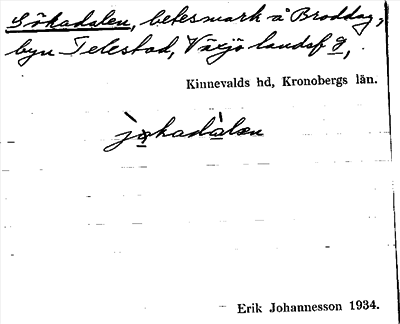 Gökadalen, betesmark å Broddag,
byn Telestad, Växjö landsf g,.
Kinnevalds hd, Kronobergs län.
jo̱kadàlen
Erik Johannesson 1934.